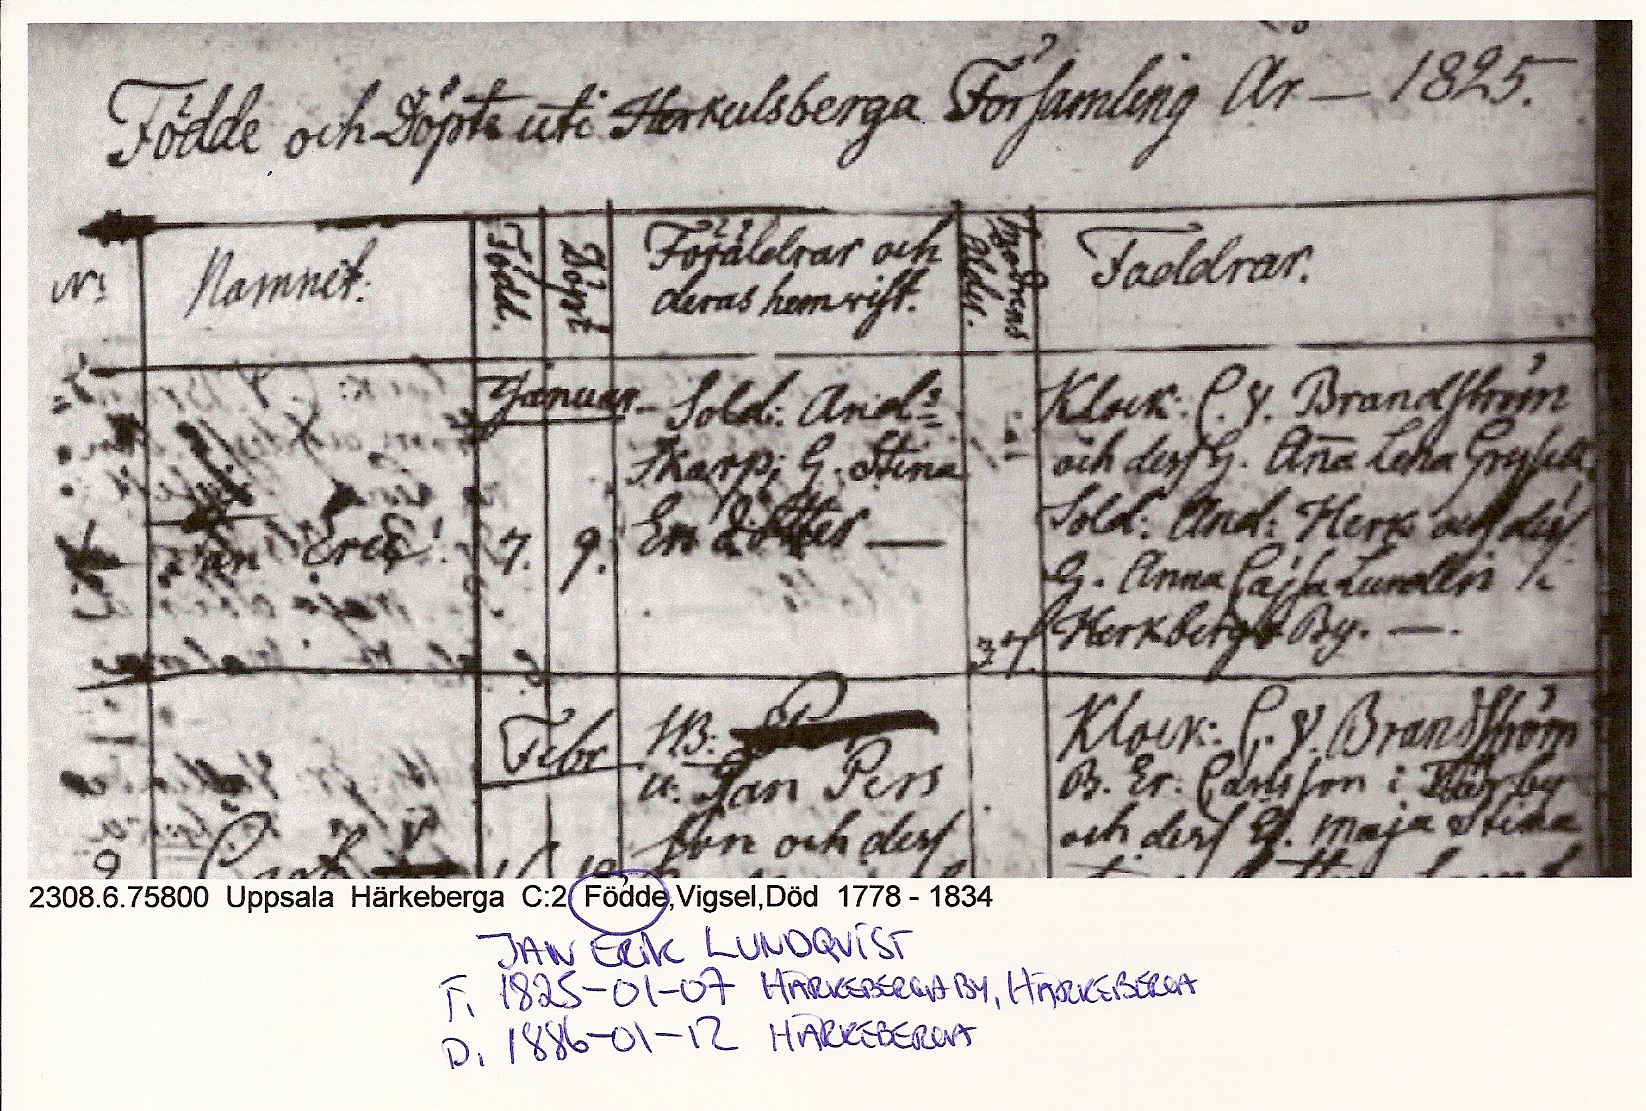 Födde och Döpte uti Herkulsberga Församling År — 1825.
No
Namnet.
Född.
Döpt
Föräldrar och
deras hemvist.
Modrens
Ålder.
Faddrar.
Januar
Jan Eric
7.
9.
Sold: And:s
Skarp; G. Stina
Ersdotter —
37
Klock: C. J. Brandström
och dess G. Anna Lena
Sold: And: Herk och dess
G. Anna Cajsa Lundlin i
Herkberga By. —.
Febr
HB:
u. Jan Pers
son och dess
Klock: C. J. Brandström
B. Er. Carlsson i
och dess G. Maja Stina
2308.6.75800 Uppsala Härkeberga C:2 Födde,Vigsel,Död 1778 - 1834
JAN ERIK LUNDQVIST
F. 1825-01-07 HÄRKEBERGA BY, HÄRKEBERGA
D. 1886-01-12 HÄRKEBERGA